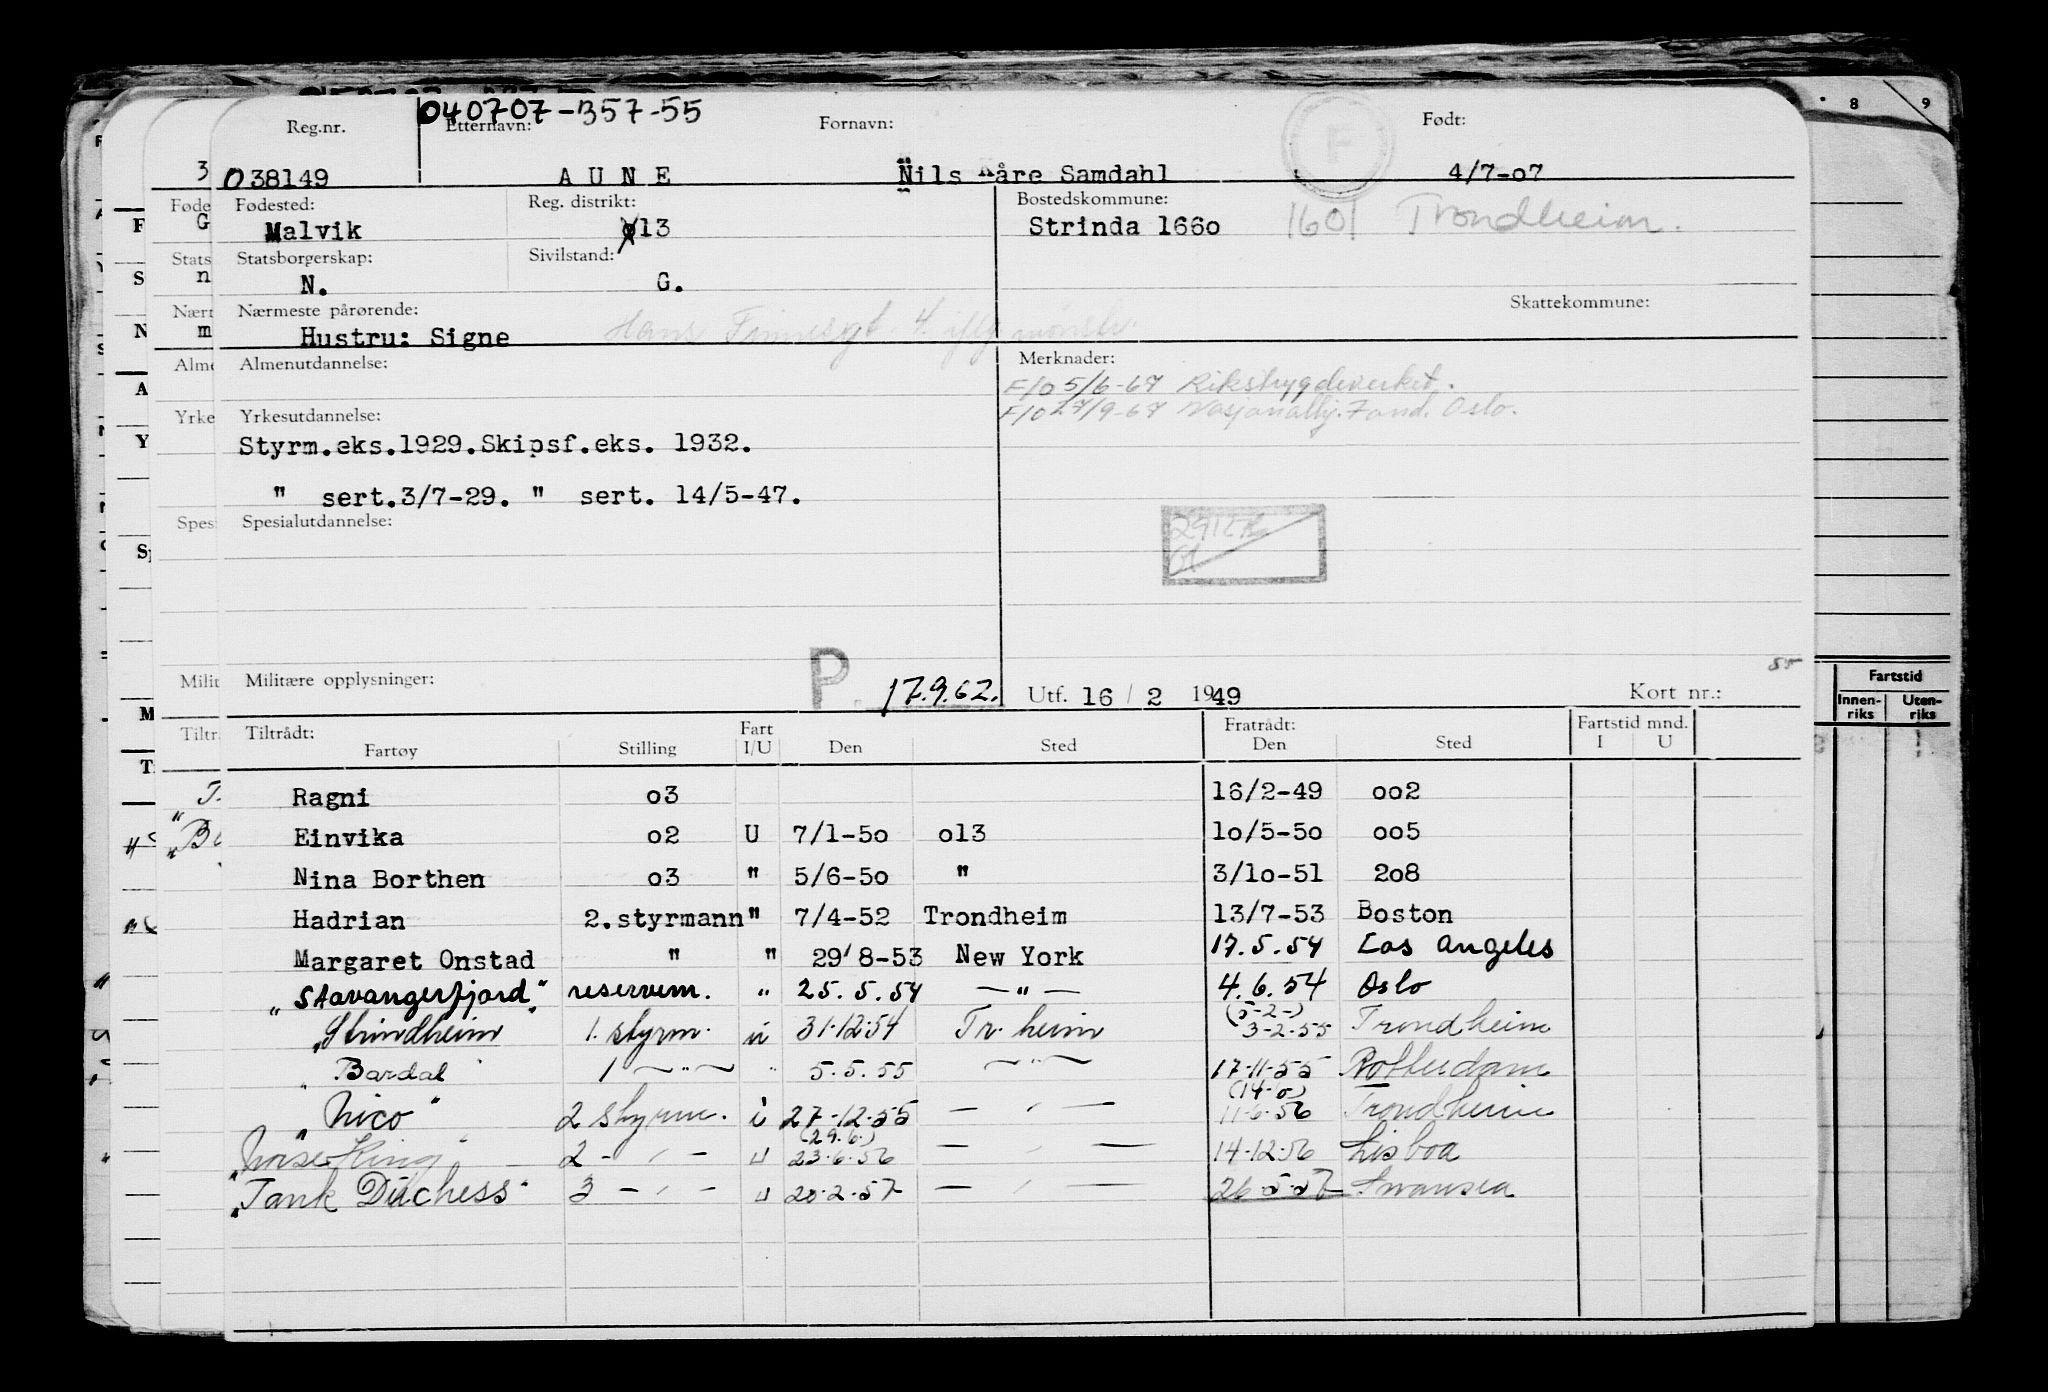 040707-357-55
Reg.nr. Etternavn: Fornavn: Født:
038149 AUNE Nils Kåre Samdahl 4/7-o7
Fødested: Reg. distrikt: Bostedskommune:
Malvik o13 Strinda 166o 1601 Trondheim.
Statsborgerskap: Sivilstand:
N. G.
Nærmeste pårørende: Skattekommune:
Hustru: Signe Hans
Almenutdannelse: Merknader:
F/O 5/6-67 Rikstrygdeverket.
Yrkesutdannelse: F/O 27/9-67 Nasjonalhj. Fond. Oslo.
Styrm.eks.1929.Skipsf.eks. 1932.
" sert.3/7-29. " sert. 14/5-47.
Spesialutdannelse:
55
Militære opplysninger: P 17.9.62. Utf. 16 / 2 1949 Kort nr.:
Tiltrådt: Fart Fratrådt: Fartstid mnd.
Fartøy Stilling I/U Den Sted Den Sted I U
Ragni o3 16/2-49 oo2
Einvika o2 U 7/1-5o o13 1o/5-5o oo5
Nina Borthen o3 " 5/6-5o " 3/1o-51 2o8
Hadrian 2.styrmann " 7/4-52 Trondheim 13/7-53 Boston
Margaret Onstad " " 29/8-53 New York 17.5.54 Los Angeles
"Stavangerfjord" reservem. " 25.5.54 — " — 4.6.54 Oslo
(5-2-)
"Strindheim" 1. styrm. u 31.12.54 Tr.heim 3-2-55 Trondheim
"Bardal" 1 — " — " 5.5.55 — " — 17-11-55 Rotterdam
(14-6)
"Nico" 2 styrm. i 27-12-55 — " — 11-6-56 Trondheim
(29.6.)
"Norse King" 2 - " - u 23.6.56 — " — 14-12-56 Lisboa
"Tank Duchess" 3 - " - u 20.2.57 — " — 26-5-57 Swansea
8 9
Fartstid
Innen-riks Uten-riks